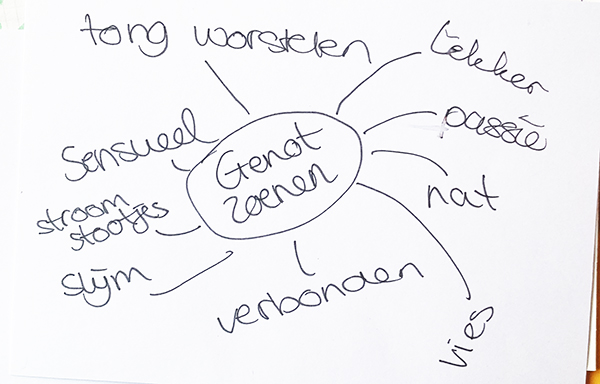 tong worstelen
lekker
passie
Sensueel
Genot
zoenen
nat
stroom
stootjes
slijm
verbonden
vies